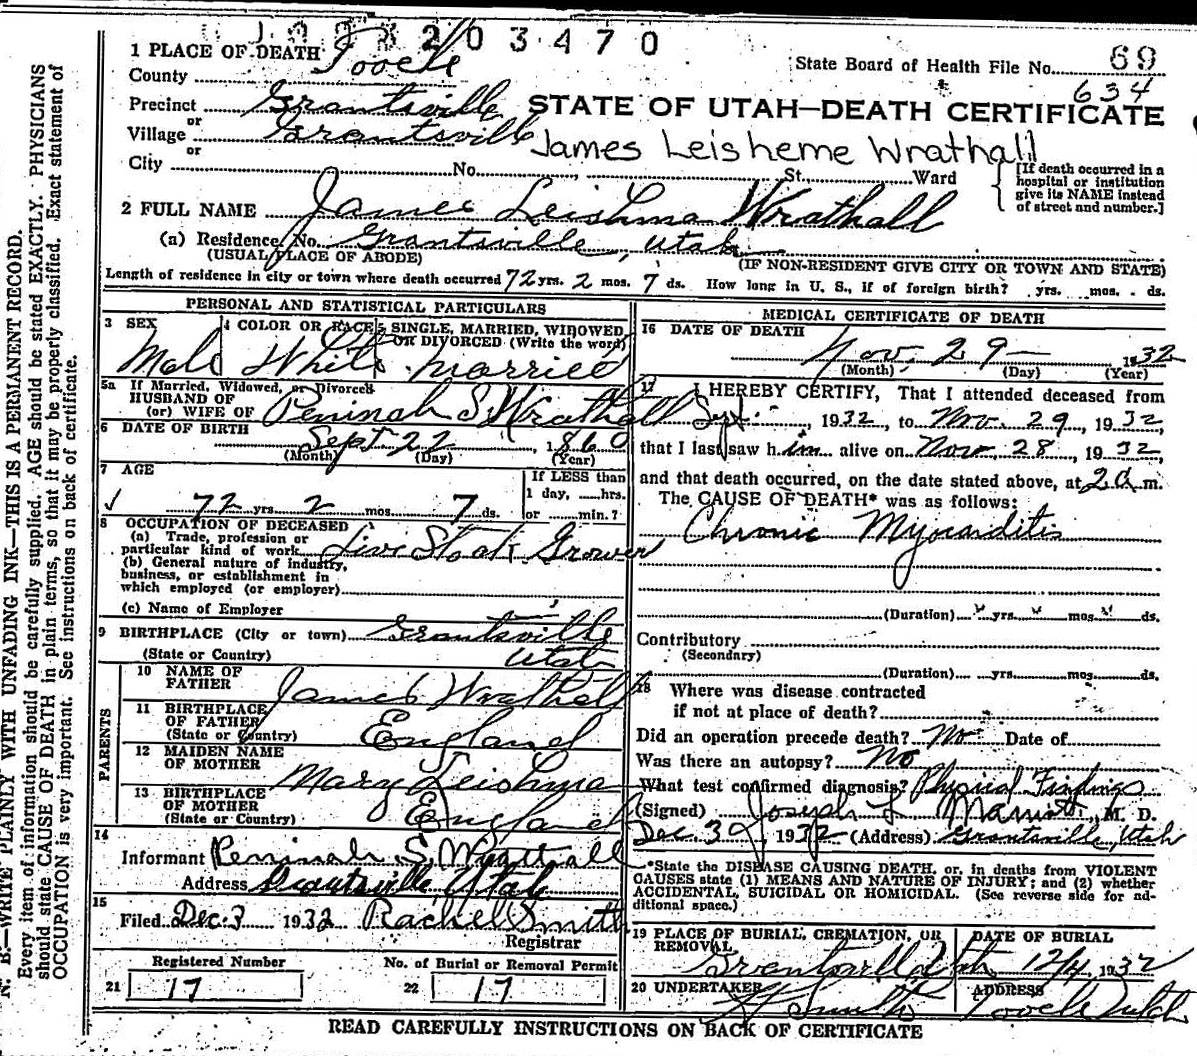 203470
1 PLACE OF DEATH
County Tooele
State Board of Health File No. 69
634
Precinct Grantsville
or
STATE OF UTAH—DEATH CERTIFICATE
Village Grantsville
or
James Leisheme Wrathall
City No. St. Ward
[If death occurred in a hospital or institution give its NAME instead of street and number.]
2 FULL NAME James Leishma Wrathall
(a) Residence, No. Grantsville, Utah
(USUAL PLACE OF ABODE) (IF NON-RESIDENT GIVE CITY OR TOWN AND STATE)
Length of residence in city or town where death occurred 72 yrs. 2 mos. 7 ds. How long in U. S., if of foreign birth? yrs. mos. ds.
PERSONAL AND STATISTICAL PARTICULARS
3 SEX 4 COLOR OR RACE 5 SINGLE, MARRIED, WIDOWED
OR DIVORCED (Write the word)
Male White married
5a If Married, Widowed, or Divorced
HUSBAND OF
(or) WIFE OF Peninah S. Wrathall
6 DATE OF BIRTH Sept 22 1860
(Month) (Day) (Year)
7 AGE
If LESS than
1 day, hrs.
72 yrs. 2 mos. 7 ds. or min.?
8 OCCUPATION OF DECEASED
(a) Trade, profession or
particular kind of work Live Stock Grower
(b) General nature of industry,
business, or establishment in
which employed (or employer)
(c) Name of Employer
9 BIRTHPLACE (City or town) Grantsville
(State or Country) Utah
PARENTS
10 NAME OF
FATHER James Wrathall
11 BIRTHPLACE
OF FATHER
(State or Country) England
12 MAIDEN NAME
OF MOTHER Mary Leishma
13 BIRTHPLACE
OF MOTHER
(State or Country) England
14
Informant Peninah S. Wrathall
Address Grantsville, Utah
15
Filed Dec. 3 1932 Rachel Smith
Registrar
Registered Number No. of Burial or Removal Permit
21 17 22 17
MEDICAL CERTIFICATE OF DEATH
16 DATE OF DEATH
Nov. 29 1932
(Month) (Day) (Year)
17 I HEREBY CERTIFY, That I attended deceased from
Sept. , 1932, to Nov. 29, 1932,
that I last saw him alive on Nov 28, 1932,
and that death occurred, on the date stated above, at 2 a.m.
The CAUSE OF DEATH* was as follows:
Chronic Myocarditis
(Duration) yrs. mos. ds.
Contributory
(Secondary)
(Duration) yrs. mos. ds.
18 Where was disease contracted
if not at place of death?
Did an operation precede death? No Date of
Was there an autopsy? No
What test confirmed diagnosis? Physical Findings
(Signed) Joseph L , M. D.
Dec. 30, 1932 (Address) Grantsville, Utah
*State the DISEASE CAUSING DEATH, or, in deaths from VIOLENT
CAUSES state (1) MEANS AND NATURE OF INJURY; and (2) whether
ACCIDENTAL, SUICIDAL OR HOMICIDAL. (See reverse side for ad-
ditional space.)
19 PLACE OF BURIAL, CREMATION, OR
REMOVAL
DATE OF BURIAL
Grantsville Utah 12/4, 1932
20 UNDERTAKER ADDRESS
Smith Tooele Utah
READ CAREFULLY INSTRUCTIONS ON BACK OF CERTIFICATE
N. B.—WRITE PLAINLY WITH UNFADING INK—THIS IS A PERMANENT RECORD.
Every item of information should be carefully supplied. AGE should be stated EXACTLY. PHYSICIANS
should state CAUSE OF DEATH in plain terms, so that it may be properly classified. Exact statement of
OCCUPATION is very important. See instructions on back of certificate.